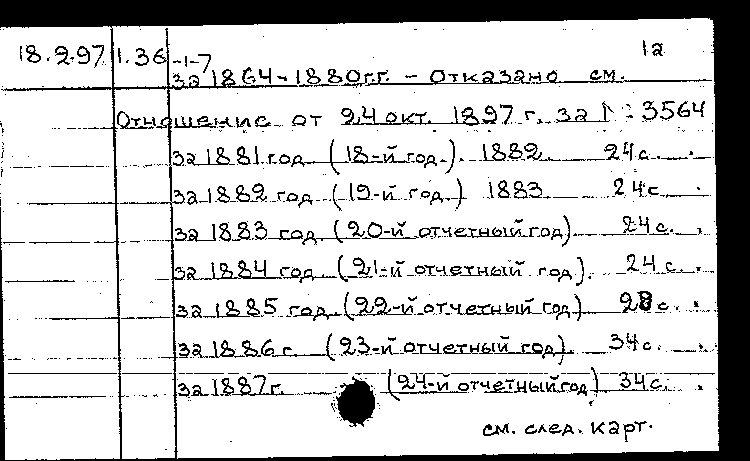 1а
18.2.97 1.36 -1-7
за 1864-1880гг. - Отказано см.
Отношение от 24 окт. 1897 г. за № 3564
за 1881 год (18-й год.). 1882. 24с.
за 1882 год (19-й год.) 1883 24с
за 1883 год. (20-й отчетный год). 24с.
за 1884 год. (21-й отчетный год). 24с.
за 1885 год. (22-й отчетный год) с.
за 1886г. (23-й отчетный год). 34с.
за 1887г. (24-й отчетный год) 34с.
см. след. карт.